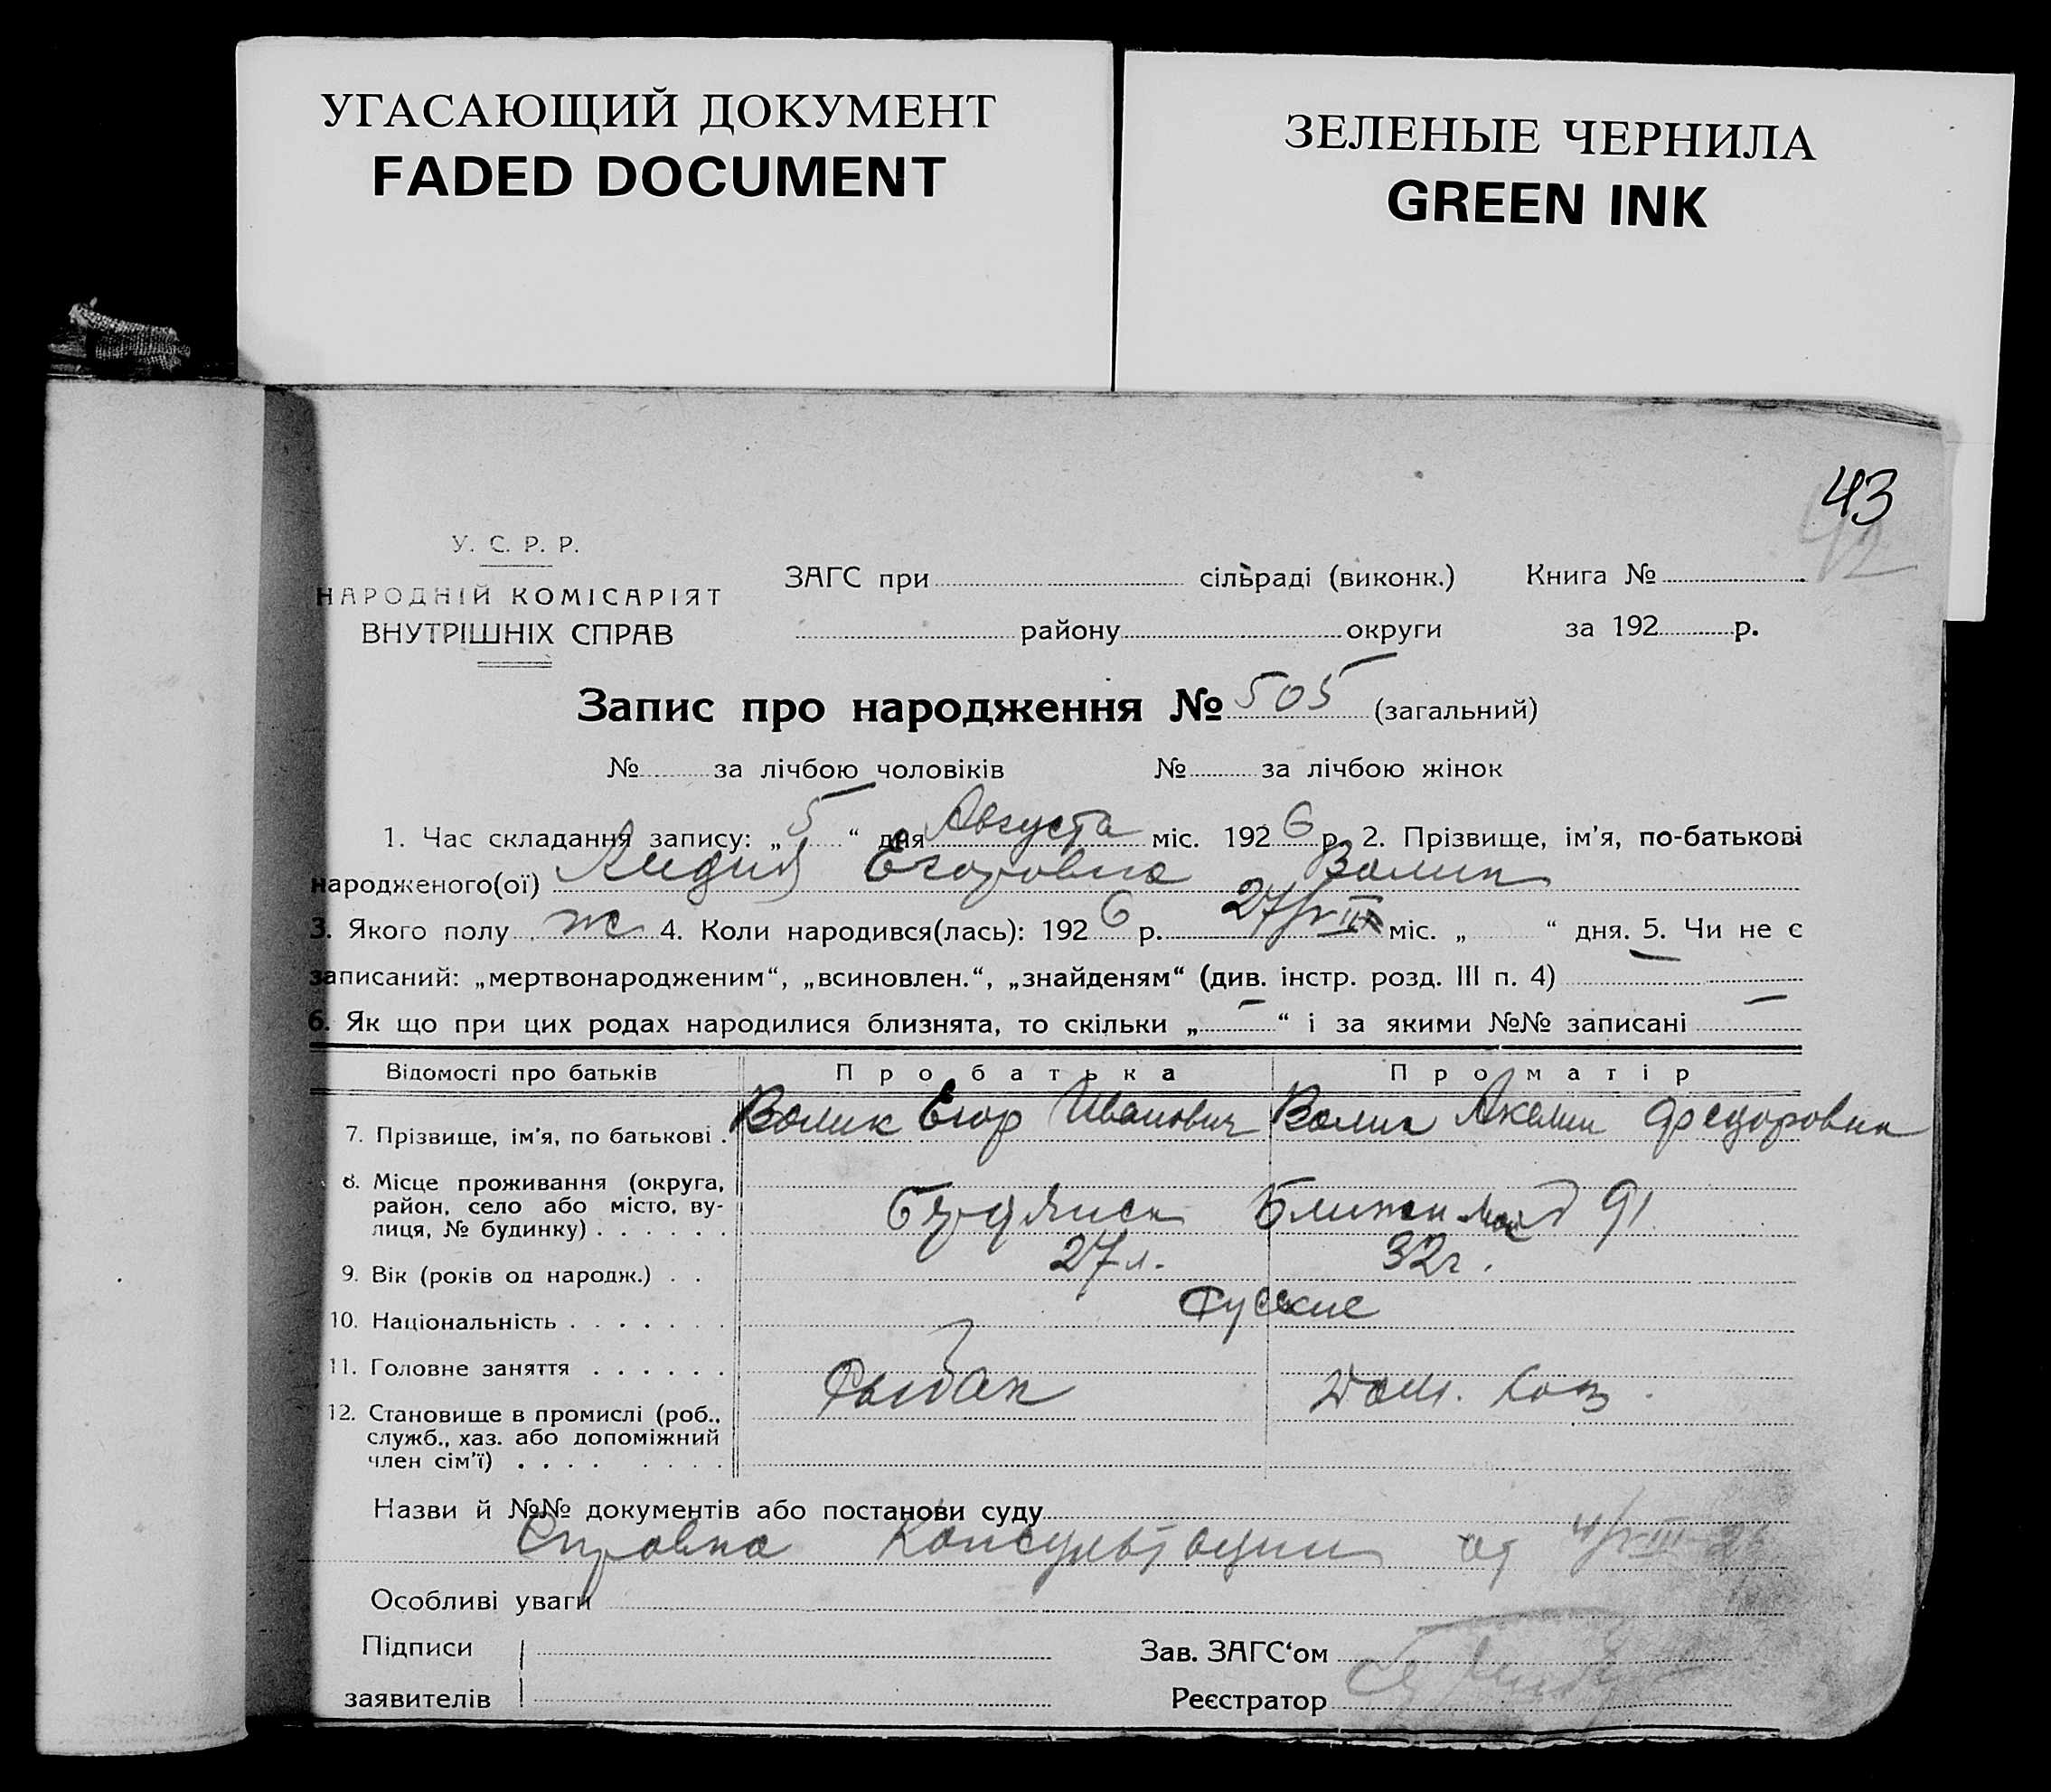 УГАСАЮЩИЙ ДОКУМЕНТ
FADED DOCUMENT
ЗЕЛЕНЫЕ ЧЕРНИЛА
GREEN INK
43
42
У. С. Р. Р.
НАРОДНІЙ КОМІСАРІЯТ
ВНУТРІШНІХ СПРАВ
ЗАГС при сільраді (виконк.) Книга №
району округи за 192 р.
Запис про народження № 505 (загальний)
№ за лічбою чоловіків № за лічбою жінок
1. Час складання запису: „ 5 “ дня Августа міс. 192 6 р. 2. Прізвище, ім’я, по-батькові
народженого(ої) Лидия Егоровна Волик
3. Якого полу ж 4. Коли народився(лась): 192 6 р. 27/ міс. „ “ дня. 5. Чи не є
записаний: „мертвонародженим“, „всиновлен.“, „знайденям“ (див. інстр. розд. III п. 4) —
6. Як що при цих родах народилися близнята, то скільки „ — “ і за якими №№ записані —
Відомості про батьків Про батька Про матір
7. Прізвище, ім’я, по батькові . Волик Егор Иванович Волик Федоровна
8. Місце проживання (округа,
район, село або місто, ву-
лиця, № будинку) . . . . . . Бердянск 91
9. Вік (років од народж.) . . 27 л. 32 г.
10. Національність . . . . . . . Русские
11. Головне заняття . . . . . . Рыбак Дом. хоз.
12. Становище в промислі (роб.,
служб., хаз. або допоміжний
член сім’ї) . . . . . . . .
Назви й №№ документів або постанови суду
Справка Консультации от 4/VIII 26
Особливі уваги
Підписи
заявителів
Зав. ЗАГС‘ом
Реєстратор